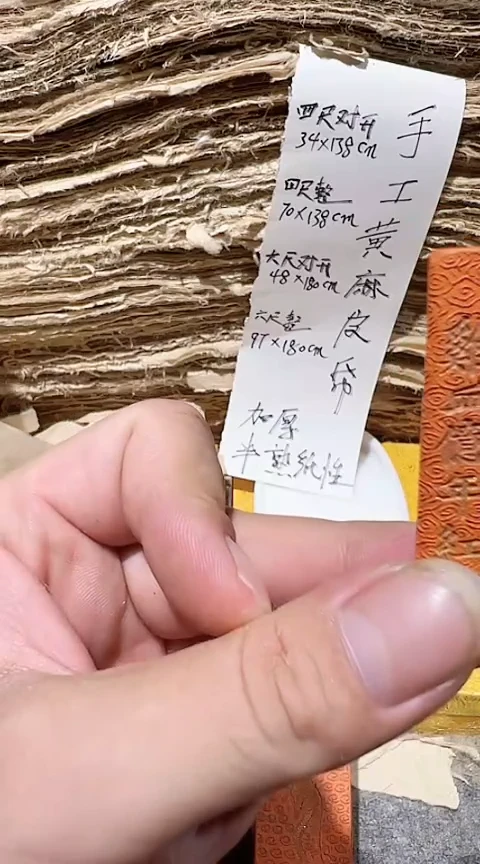 手工黄麻皮帋
四尺对开
34×138cm
四尺整
70×138cm
六尺对开
48×180cm
六尺整
97×180cm
加厚
半熟纸性